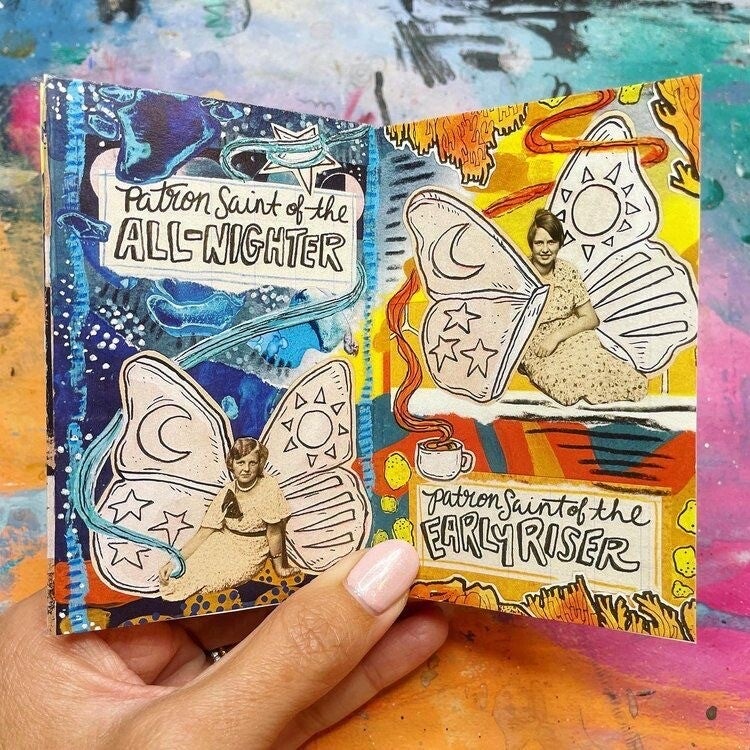 Patron Saint of the
ALL-NIGHTER
patron saint of the
EARLY RISER